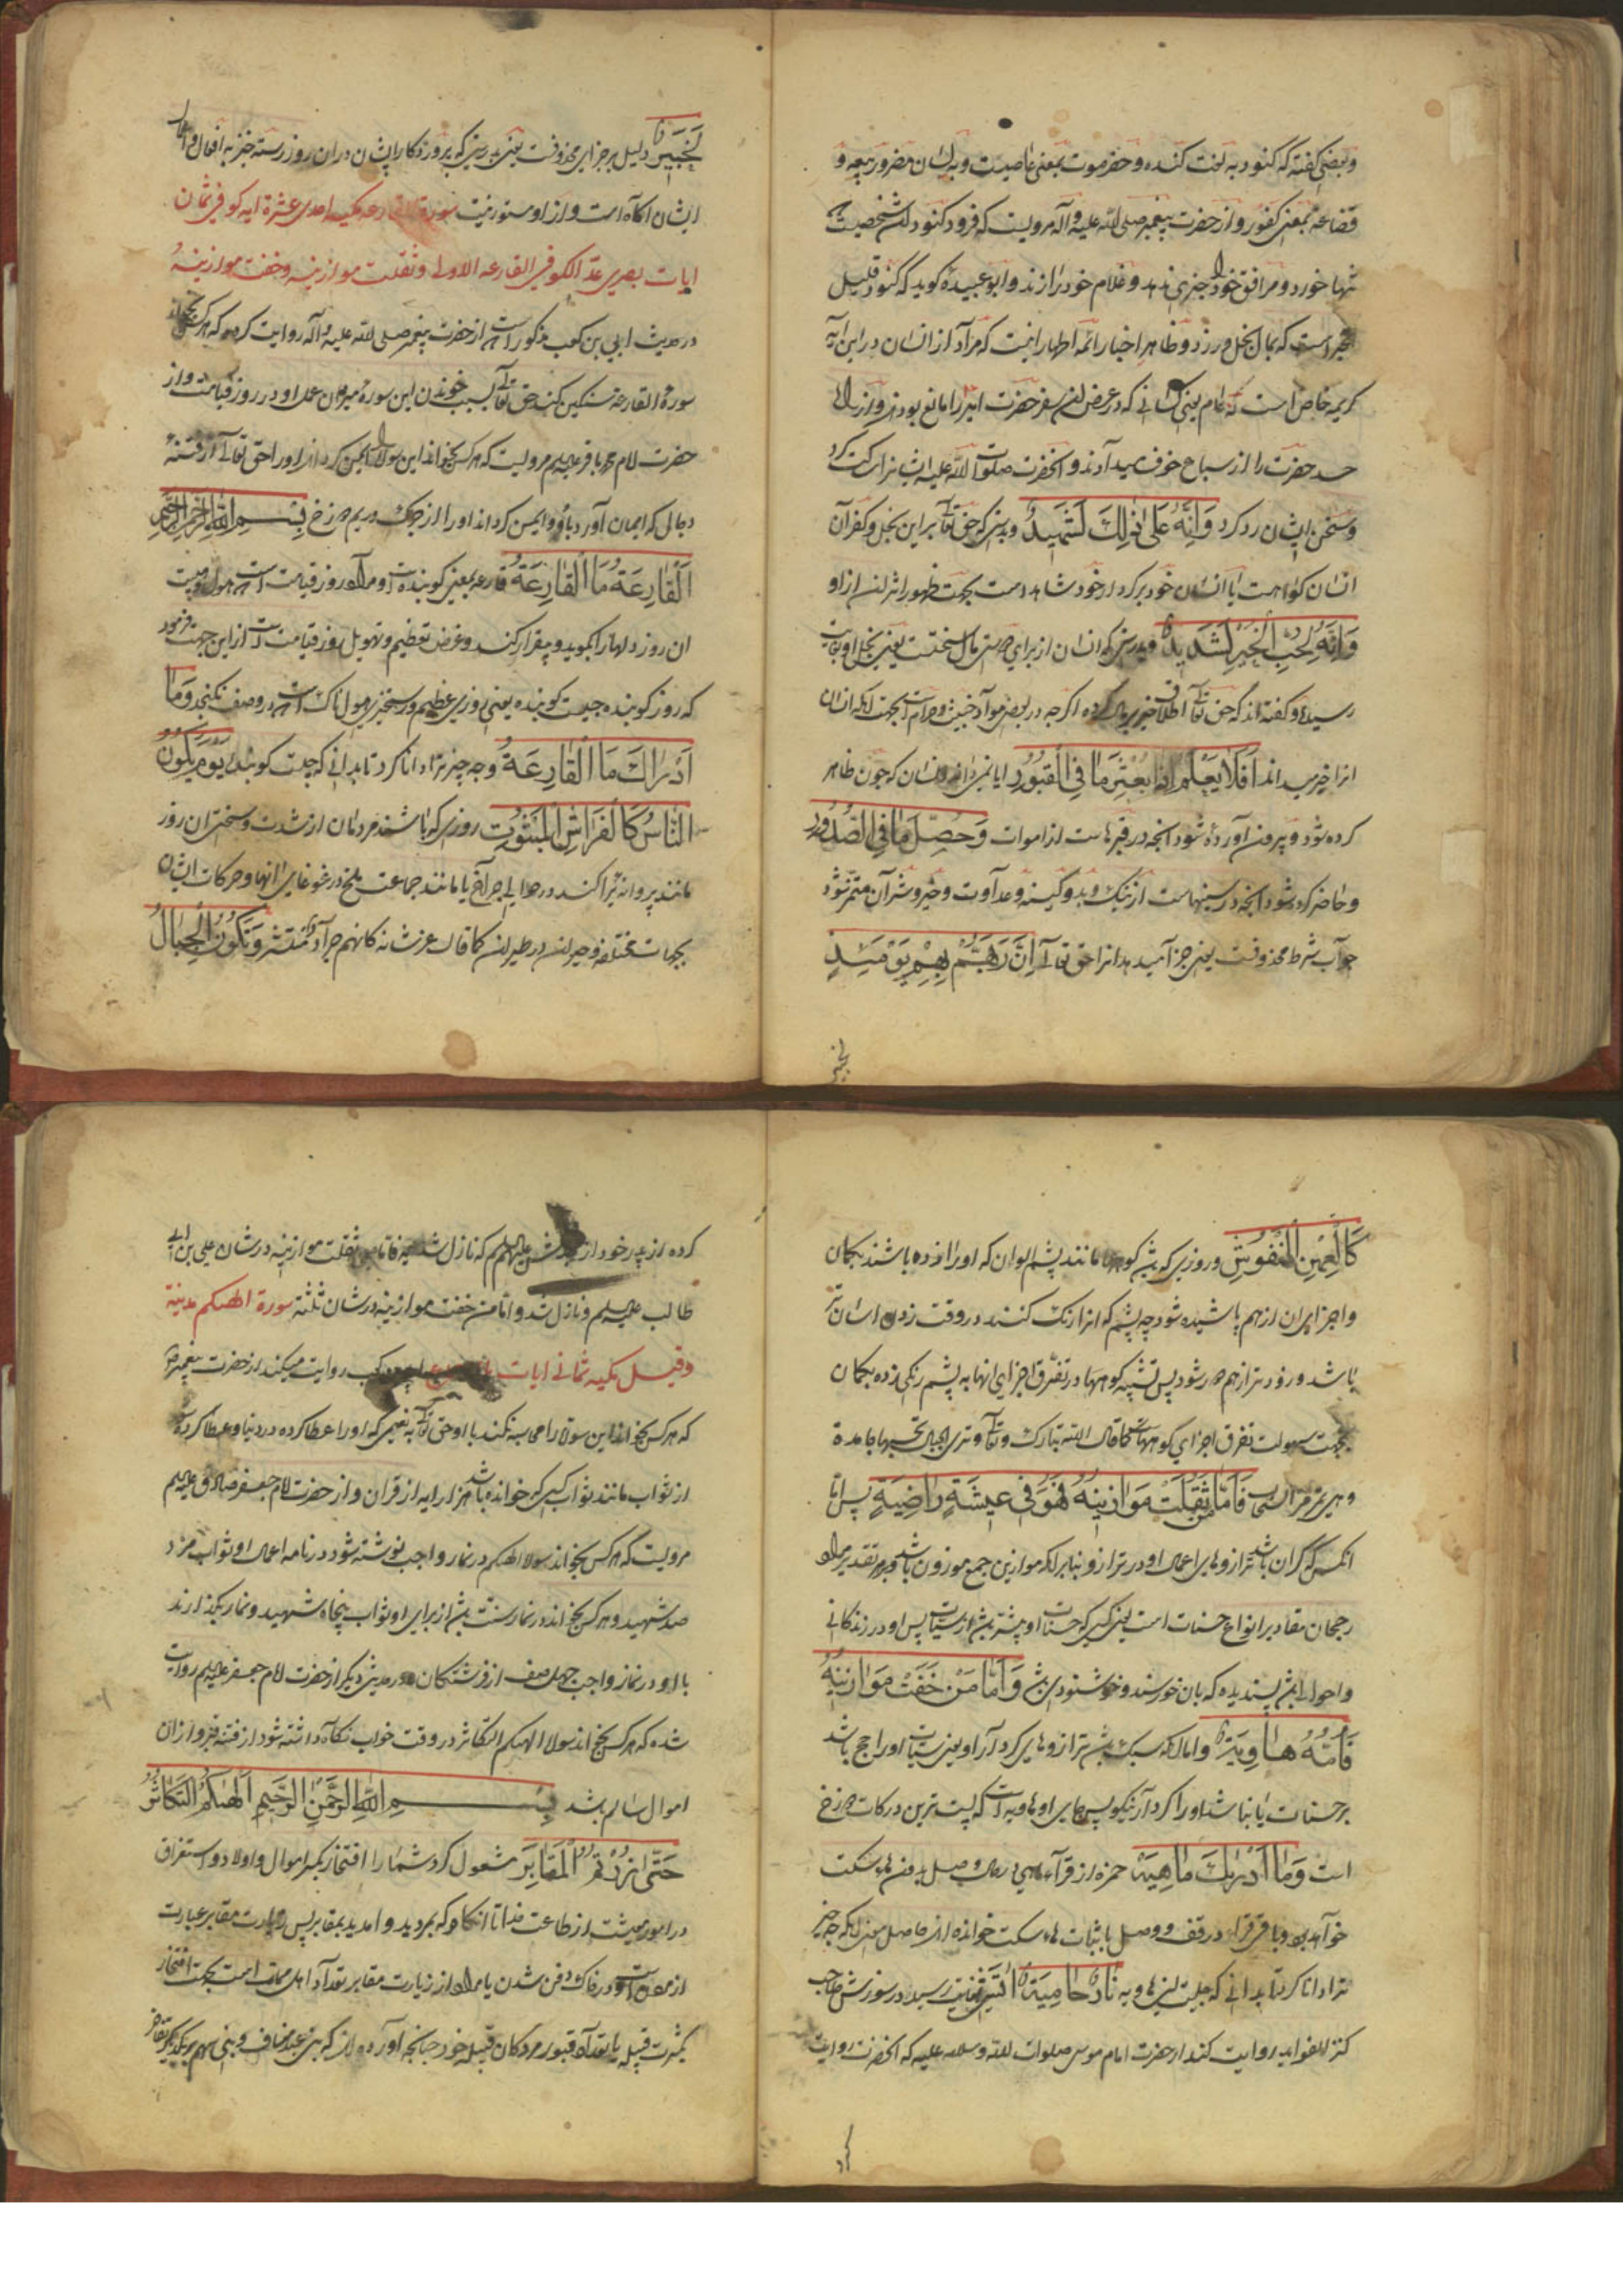 وبعضی گفته که کنود به لغت کنده و حضرموت بمعنی عاصیست و بلسان مضر و ربیعه و
قضاعه بمعنی کفور و از حضرت پیغمبر صلی الله علیه و آله مرویست که فرمود کنود آن شخصیست که
تنها خورد و مرافق خود را چیزی ندهد و غلام خود را زند و ابو عبیده گوید که کنود قلیل
خیر است که بمال بخل ورزد و ظاهر اخبار ائمه اطهار انیست که مراد از انسان در این ایه
کریمه خاص است نه عام یعنی کسانی که در عرض این سفر حضرت امیر را مانع بودند و از برای
حسد حضرت را از سباع خوف میدادند و آنحضرت صلوات الله علیه ایشانرا کت کرد
و سخن ایشان رد کرد وَاِنَّهُ عَلیٰ ذٰلِكَ لَشَهِیدٌ و بدرستی که حق تعالی بر این بخل و کفران
انسان کواهست یا انسان خود بر کردار خود شاهد است بجهت ظهور اثر ان از او
وَاِنَّهُ لِحُبِّ الْخَیْرِ لَشَدِیدٌ و بدرستی که انسان از برای دوستی مال سخت است یعنی بخل او بغایت
رسیده و گفته اند که حق تعالی اطلاق خیر بر مال کرده اگر چه در بعضی مواد خبیث و حرام است بجهت انکه انسان
انرا خیر میداند اَفَلَا یَعْلَمُ اِذَا بُعْثِرَ مَا فِی الْقُبُورِ ایا نمیداند انسان که چون ظاهر
کرده شود و بیرون آورده شود انچه در قبرهاست از اموات وَحُصِّلَ مَا فِی الصُّدُورِ
و حاضر کرده شود انچه در سینهاست از نیک و بد و کینه و عداوت و خیر و شر آن متمیز شود
جواب شرط محذوفست یعنی جزا میدهد انرا حق تعالی اِنَّ رَبَّهُمْ بِهِمْ یَوْمَئِذٍ
لخبیر
لَخَبِیرٌ دلیل بر جزای محذوفست یعنی بدرستی که پروردکار ایشان در ان روز رستخیز به افعال و اعمال
ایشان اکاه است و از او مستور نیست سورة القارعه مکیه احدی عشرة ایه کوفی ثمان
ایات بصری عدّ الکوفی القارعه الاولی و ثقلت موازینه و خفت موازینهُ
در حدیث ابی بن کعب مذکور است از حضرت پیغمبر صلی الله علیه و آله روایت کرده که هر کس بخواند
سورهٔ القارعه سنگین کند حق تعالی بسبب خوندن این سوره میزان عمل او در روز قیامت و از
حضرت امام محمد باقر علیه السلم مرویست که هر کس بخواند این سوره را ایمن کرداند او را حق تعالی از فتنهٔ
دجالی که ایمان آورد باو و ایمن کرداند او را از چرک و ریم دوزخ بِسْمِ اللهِ الرَّحْمٰنِ الرَّحِیمِ
اَلْقَارِعَةُ مَا الْقَارِعَةُ قارعه بمعنی کوبنده است و مراد روز قیامت است هول و هیبت
ان روز دلها را بکوبد و بیقرار کند و غرض تعظیم و تهویل روز قیامت است از این جهت فرمود
که روز کوبنده چیست کوبنده یعنی روزی عظیم و رستخیزی هولناک است که در وصف نکنجد وَمَا
اَدْرَاكَ مَا الْقَارِعَةُ و چه چیز ترا دانا کرد تا بدانی که چیست کوبنده یَوْمَ یَكُونُ
النَّاسُ كَالْفَرَاشِ الْمَبْثُوثِ روزی که باشند مردمان از شدت و سختی ان روز
مانند پروانه پراکنده در حوالی چراغ یا مانند جماعت ملخ در غوغای انها و حرکات ایشان
بجهات مختلفه و حیران در طیران کما قال عز شانه کانهم جراد منتشر وَتَكُونُ الْجِبَالُ
كَالْعِهْنِ الْمَنْفُوشِ و روزی که بشود کوهها مانند پشم الوان که او را زده باشند بکمان
و اجزای ان از هم پاشیده شود چه پشم که انرا رنک کنند در وقت زدن اسان تر
باشد و زودتر از هم دور شود پس تشبیه کوهها در تفرق اجزای انها به پشم رنکی زده بکمان
بجهت سهولت تفرق اجزای کوههاست کما قال الله تبارک و تعالی و تری الجبال تحسبها جامدة
و هی تمر مر السحاب فَاَمَّا مَنْ ثَقُلَتْ مَوَازِینُهُ فَهُوَ فِی عِیشَةٍ رَاضِیَةٍ پس امّا
انکس که کران باشد ترازوهای اعمال او در ترازو بنابر انکه موازین جمع موزون باشد و بهر تقدیر مراد
رجحان مقادیر انواع حسنات است یعنی کسی که حسنات او بیشتر باشد از سیئات پس او در زندکانی
و احوالی باشد پسندیده که بان خورسند و خوشنود باشد وَاَمَّا مَنْ خَفَّتْ مَوَازِینُهُ
فَاُمُّهُ هَاوِیَةٌ و اما انکه سبک باشد ترازوهای کردار او یعنی سیئات او راجح باشد
بر حسنات یا نباشد او را کردار نیکو پس جای او هاویه است که پست ترین درکات دوزخ
است وَمَا اَدْرٰیكَ مَا هِیَهْ حمزه از قراء ماهی در حال وصل بدون هاء سکت
خوانده و باقی قراء در وقف و وصل با ثبات هاء سکت خوانده اند حاصل معنی انکه چه چیز
ترا دانا کرد تا بدانی که چیست این هاویه نَارٌ حَامِیَةٌ اتشی بغایت رسیده در سوزش صاحب
کنز الفواید روایت کند از حضرت امام موسی صلوات الله و سلامه علیه که انحضرت روایت
کرده
کرده از پدر خود از علیهم السلم که نازل شد ایه فاما من ثقلت موازینه در شان علی بن ابی
طالب علیه السلم و نازل شد و اما من خفت موازینه در شان ثلثه سورة الهیکم مدنیة
وقیل مکیه ثمانی ایات کعب روایت میکند از حضرت پیغمبر
که هر کس بخواند این سوره را محاسبه نکند با او حق تعالی به نعیمی که او را عطا کرده در دنیا و عطا کرده شود
از ثواب مانند ثواب کسی که خوانده باشد هزار ایه از قران و از حضرت امام جعفر صادق علیه السلم
مرویست که هر کس بخواند سوره الهیکم در نماز واجب نوشته شود در نامه اعمال او ثواب مزد
صد شهید و هر کس بخواند در نماز سنت باشد از برای او ثواب پنجاه شهید و نماز بکذارند
با او در نماز واجب چهل صف از فرشتکان و در حدیث دیکر از حضرت امام جعفر علیه السلم روایت
شده که هر کس بخواند سوره الهیکم التکاثر در وقت خواب نکاه داشته شود از فتنه قبر و از ان
اموال سالم باشد بِسْمِ اللهِ الرَّحْمٰنِ الرَّحِیمِ اَلْهٰیكُمُ التَّكَاثُرُ
حَتّٰی زُرْتُمُ الْمَقَابِرَ مشغول کرد شما را افتخار بکثر اموال و اولاد و استغراق
در امور معیشت از طاعت خدا تا انکاه که بمردید و امدید بمقابر پس زیارت مقابر عبارت
از موت است و در خاک دفن شدن یا مراد از زیارت مقابر تعداد اهل مماتست بجهت افتخار
بکثرت قبیله یا تعداد قبور مردکان قبیله خود چنانچه آورده اند که بنی عبد مناف و بنی سهم بر یکدیکر تفاخر